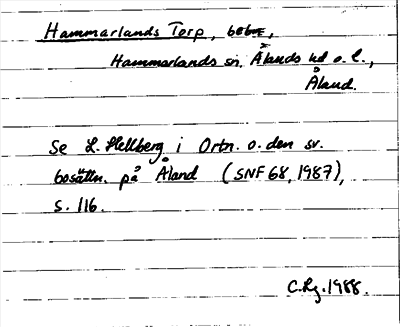 Hammarlands Torp, bebe,
Hammarlands sn. Ålands hd o. l.,
Åland.
Se L. Hellberg i Ortn. o. den sv.
bosättn. på Åland (SNF 68, 1987),
s. 116.
C. Rg. 1988.